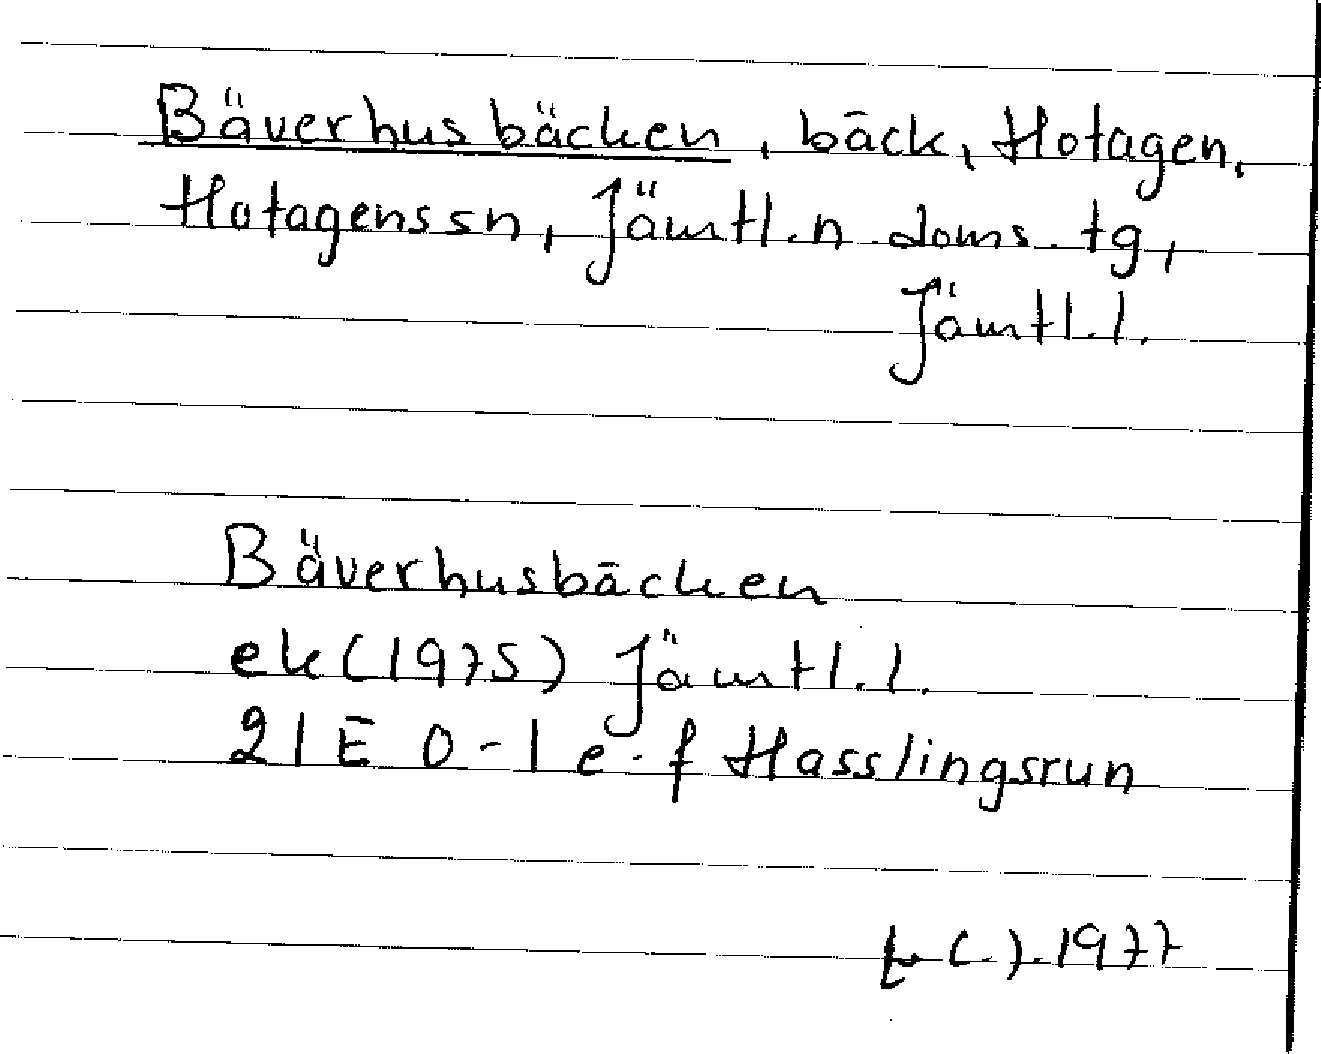 Bäverhusbäcken, bäck, Hotagen,
Hotagens sn, Jämtl. n. doms. tg,
Jämtl. l.
Bäverhusbäcken
ek (1975) Jämtl. l.
21E 0-1 e-f Hasslingsrun
( ). 1977